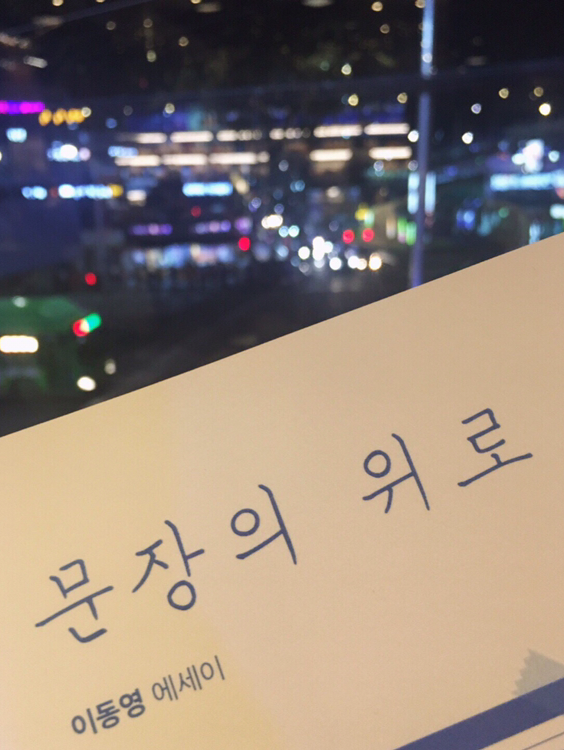 문장의 위로
이동영 에세이